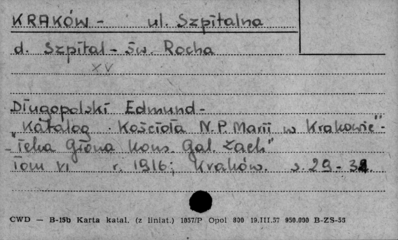 KRAKÓW - ul. Szpitalna
d. Szpital - św. Rocha
XV
Długopolski Edmund -
"Katalog Kościoła N.P. Marii w Krakowie" -
"Teka Grona Kons. Gal. Zach."
Tom VI r. 1916; Kraków. s. 29-
CWD — B-15b Karta katal. (z liniat.) 1057/P Opol 800 19.III.57 950.000 B-ZS-53